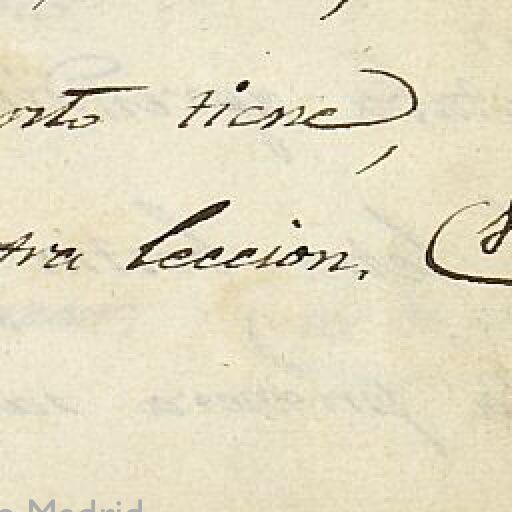 orto tiene,
tra leccion.
Madrid